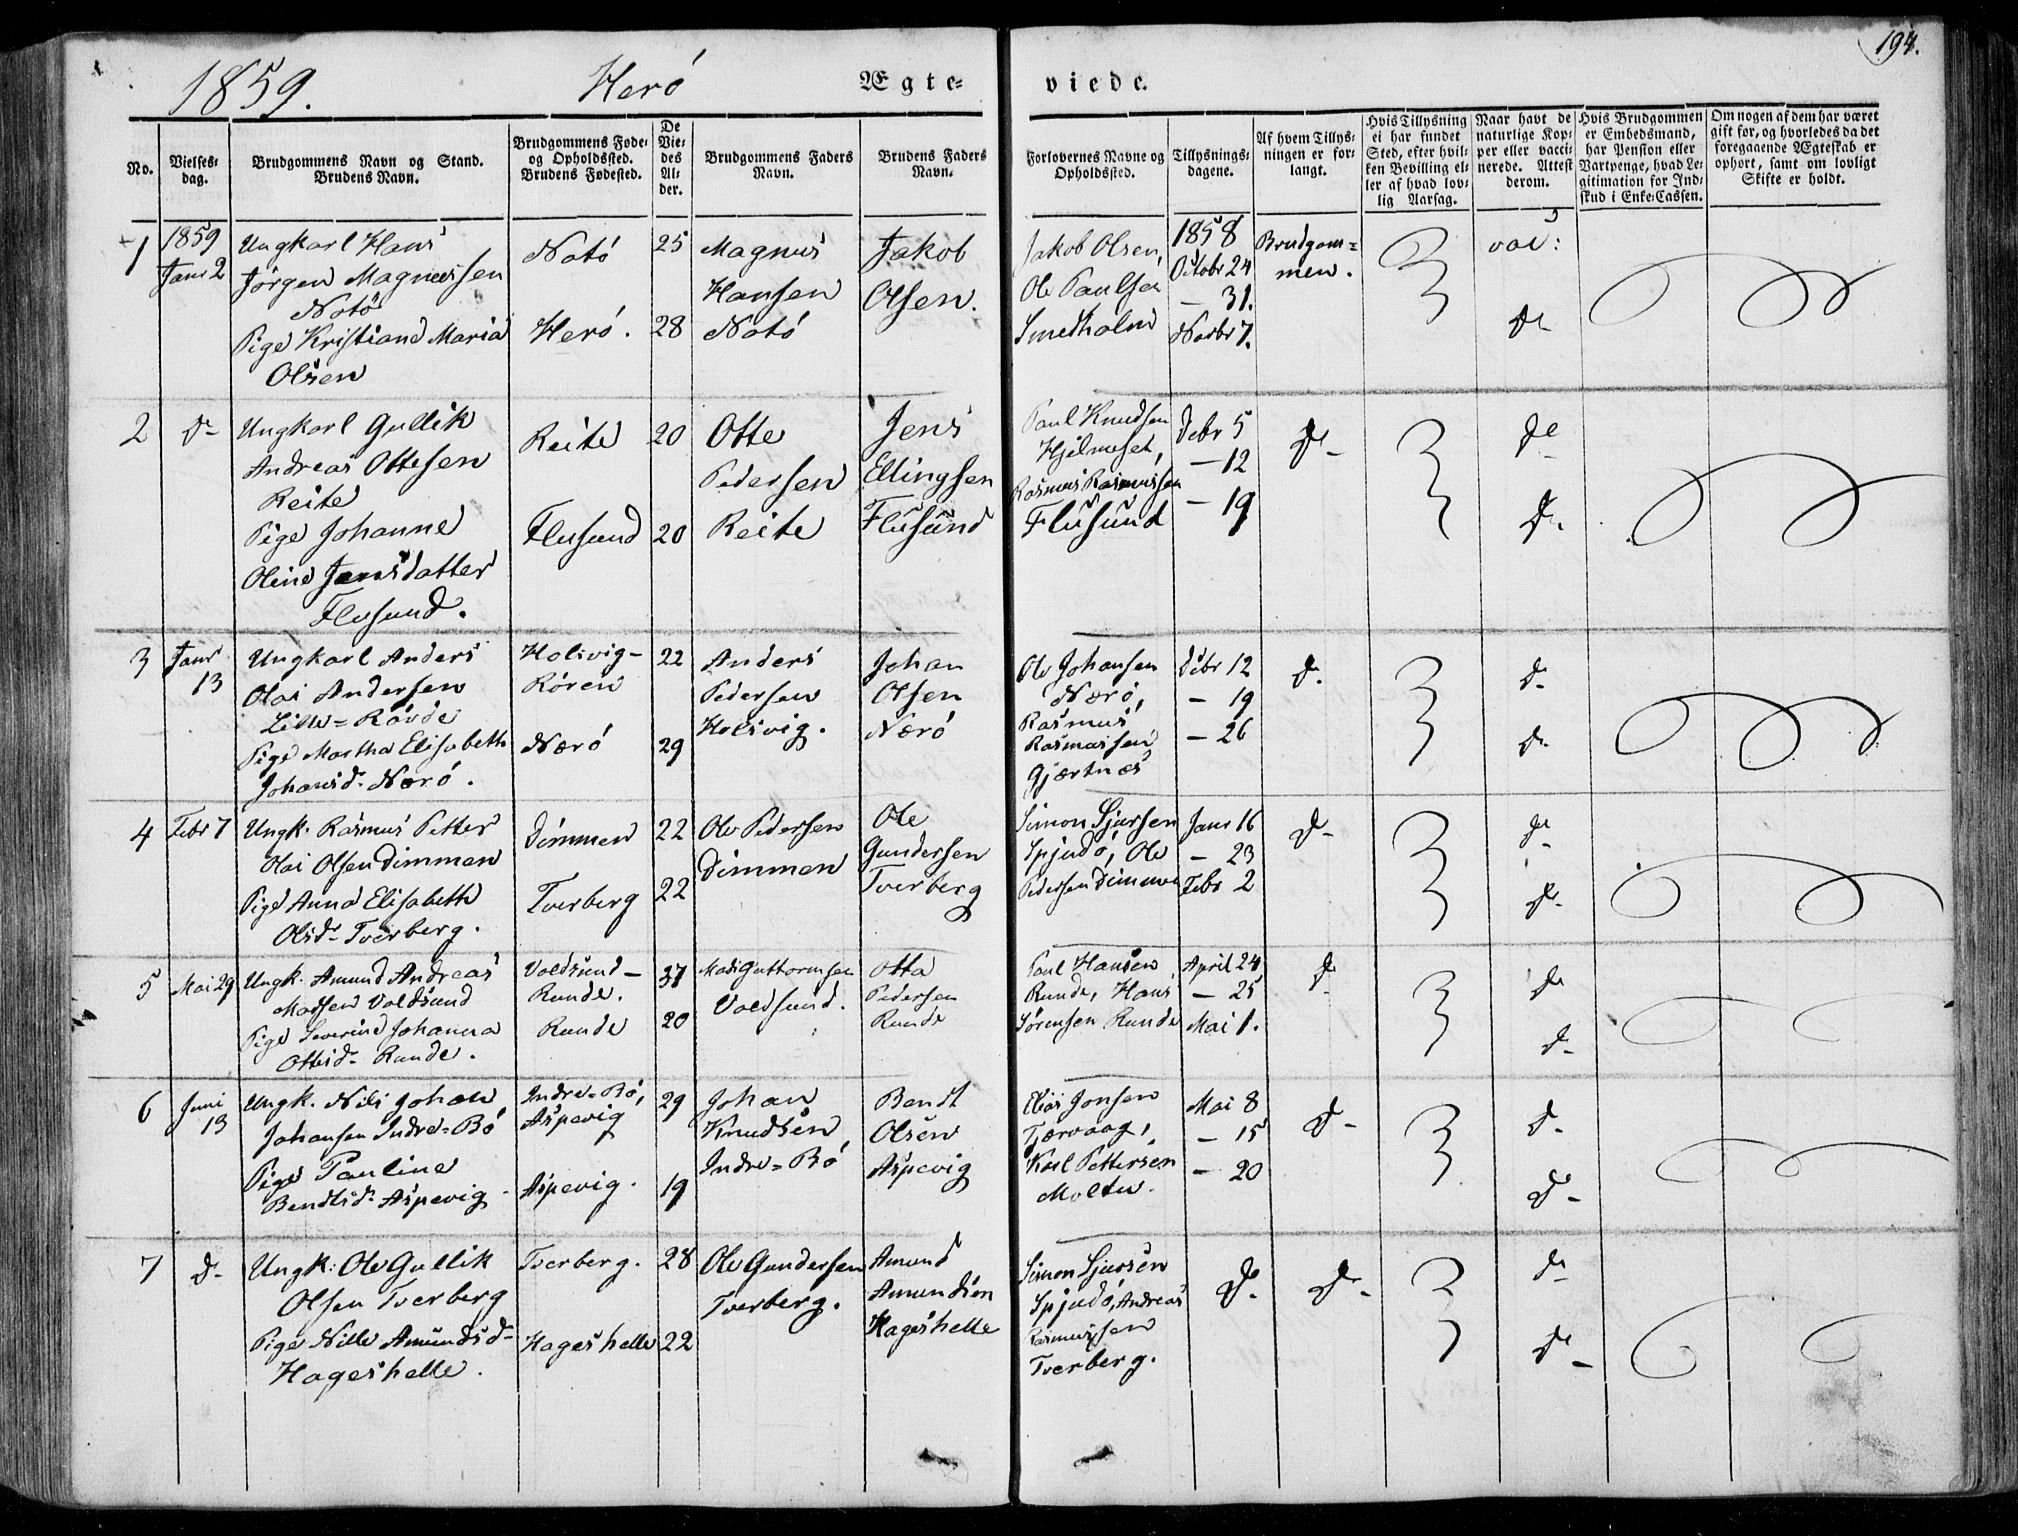 194.
1859. Herö Ægte= viede.
No.
Vielses=
dag.
Brudgommens Navn og Stand.
Brudens Navn.
Brudgommens Føde=
og Opholdssted.
Brudens Fødested.
De
Vie=
des
Al=
der.
Brudgommens Faders
Navn.
Brudens Faders
Navn.
Forlovernes Navne og
Opholdssted.
Tillysnings=
dagene.
Af hvem Tillys=
ningen er for=
langt.
Hvis Tillysning
ei har fundet
Sted, efter hvil=
ken Bevilling el=
ler af hvad lov=
lig Aarsag.
Naar havt de
naturlige Kop=
per eller vacci=
nerede. Attest
derom.
Hvis Brudgommen
er Embedsmand,
har Pension eller
Vartpenge, hvad Le=
gitimation for Ind=
skud i Enke=Cassen.
Om nogen af dem har været
gift før, og hvorledes da det
foregaaende Ægteskab er
ophørt, samt om lovligt
Skifte er holdt.
1
1859
Janr 2
Ungkarl Hans
Jörgen Magnussen
Notö
Pige Kristiane Maria
Olsen
Notö
Herö.
25
28
Magnus
Hansen
Notö
Jakob
Olsen.
Jakob Olsen,
Ole Paulsen
Smedholm
1858
Octobr 24
— 31.
Novbr 7.
Brudgom=
men.
vac:
Do
2
Do
Ungkarl Gullik
Andreas Ottesen
Reite
Pige Johanne
Oline Jensdatter
Flusund.
Reite
Flusund
20
20
Otte
Pedersen
Reite
Jens
Ellingsen
Flusund
Paul Knudsen
Hjelmeset,
Rasmus Rasmussen
Flusund
Debr 5
— 12
— 19
Do
Do
Do
3
Janr
13
Ungkarl Anders
Olai Andersen
Lille=Røvde
Pige Martha Elisabeth
Johansd. Nærö.
Holsvig—
Rören
Nærö
22
29
Anders
Pedersen
Holsvig.
Johan
Olsen
Nærö
Ole Johansen
Nærö,
Rasmus
Rasmussen
Gjærtnes
Debr 12
— 19
— 26
Do
Do
Do
4
Febr 7
Ungk. Rasmus Petter
Olai Olsen Dimmen
Pige Anna Elisabeth
Olsdr Tverberg.
Dimmen
Tverberg
22
22
Ole Pedersen
Dimmen
Ole
Gundersen
Tverberg
Simon Sjursen
Spjudö, Ole
Pedersen Dimmen
Janr 16
— 23
Febr 2
Do
Do
Do
5
Mai 29
Ungk. Amund Andreas
Madsen Voldsund
Pige Severine Johanna
Ottesdr Runde.
Voldsund—
Runde.
Runde
37
20
Mads Guttormsen
Voldsund.
Otte
Pedersen
Runde
Paul Hansen
Runde, Hans
Sörensen Runde
April 24
— 25
Mai 1.
Do
Do
Do
6
Juni
13
Ungk. Nils Johan
Johansen Indre=Bö
Pige Pauline
Bendtsdr Aspevig
Indre=Bö,
Aspevig
Aspevig.
29
19
Johan
Knudsen
Indre=Bö
Bendt
Olsen
Aspevig
Elias Jonsen
Tjervaag,
Karl Pettersen
Moltu.
Mai 8
— 15
— 20
Do
Do
Do
7
Do
Ungk: Ole Gullik
Olsen Tverberg
Pige Nille Amundsdr
Hageshelle.
Tverberg.
Hageshelle
28
22
Ole Gundersen
Tverberg.
Amund
Amundsen
Hageshelle
Simon Sjursen
Spjudö, Andreas
Rasmussen
Tverberg.
Do
Do
Do
Do